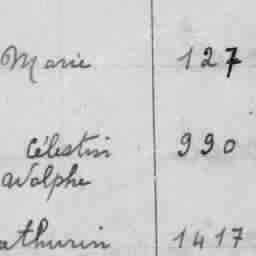 Marie 127
Célestin 990
Adolphe
athurin 1417